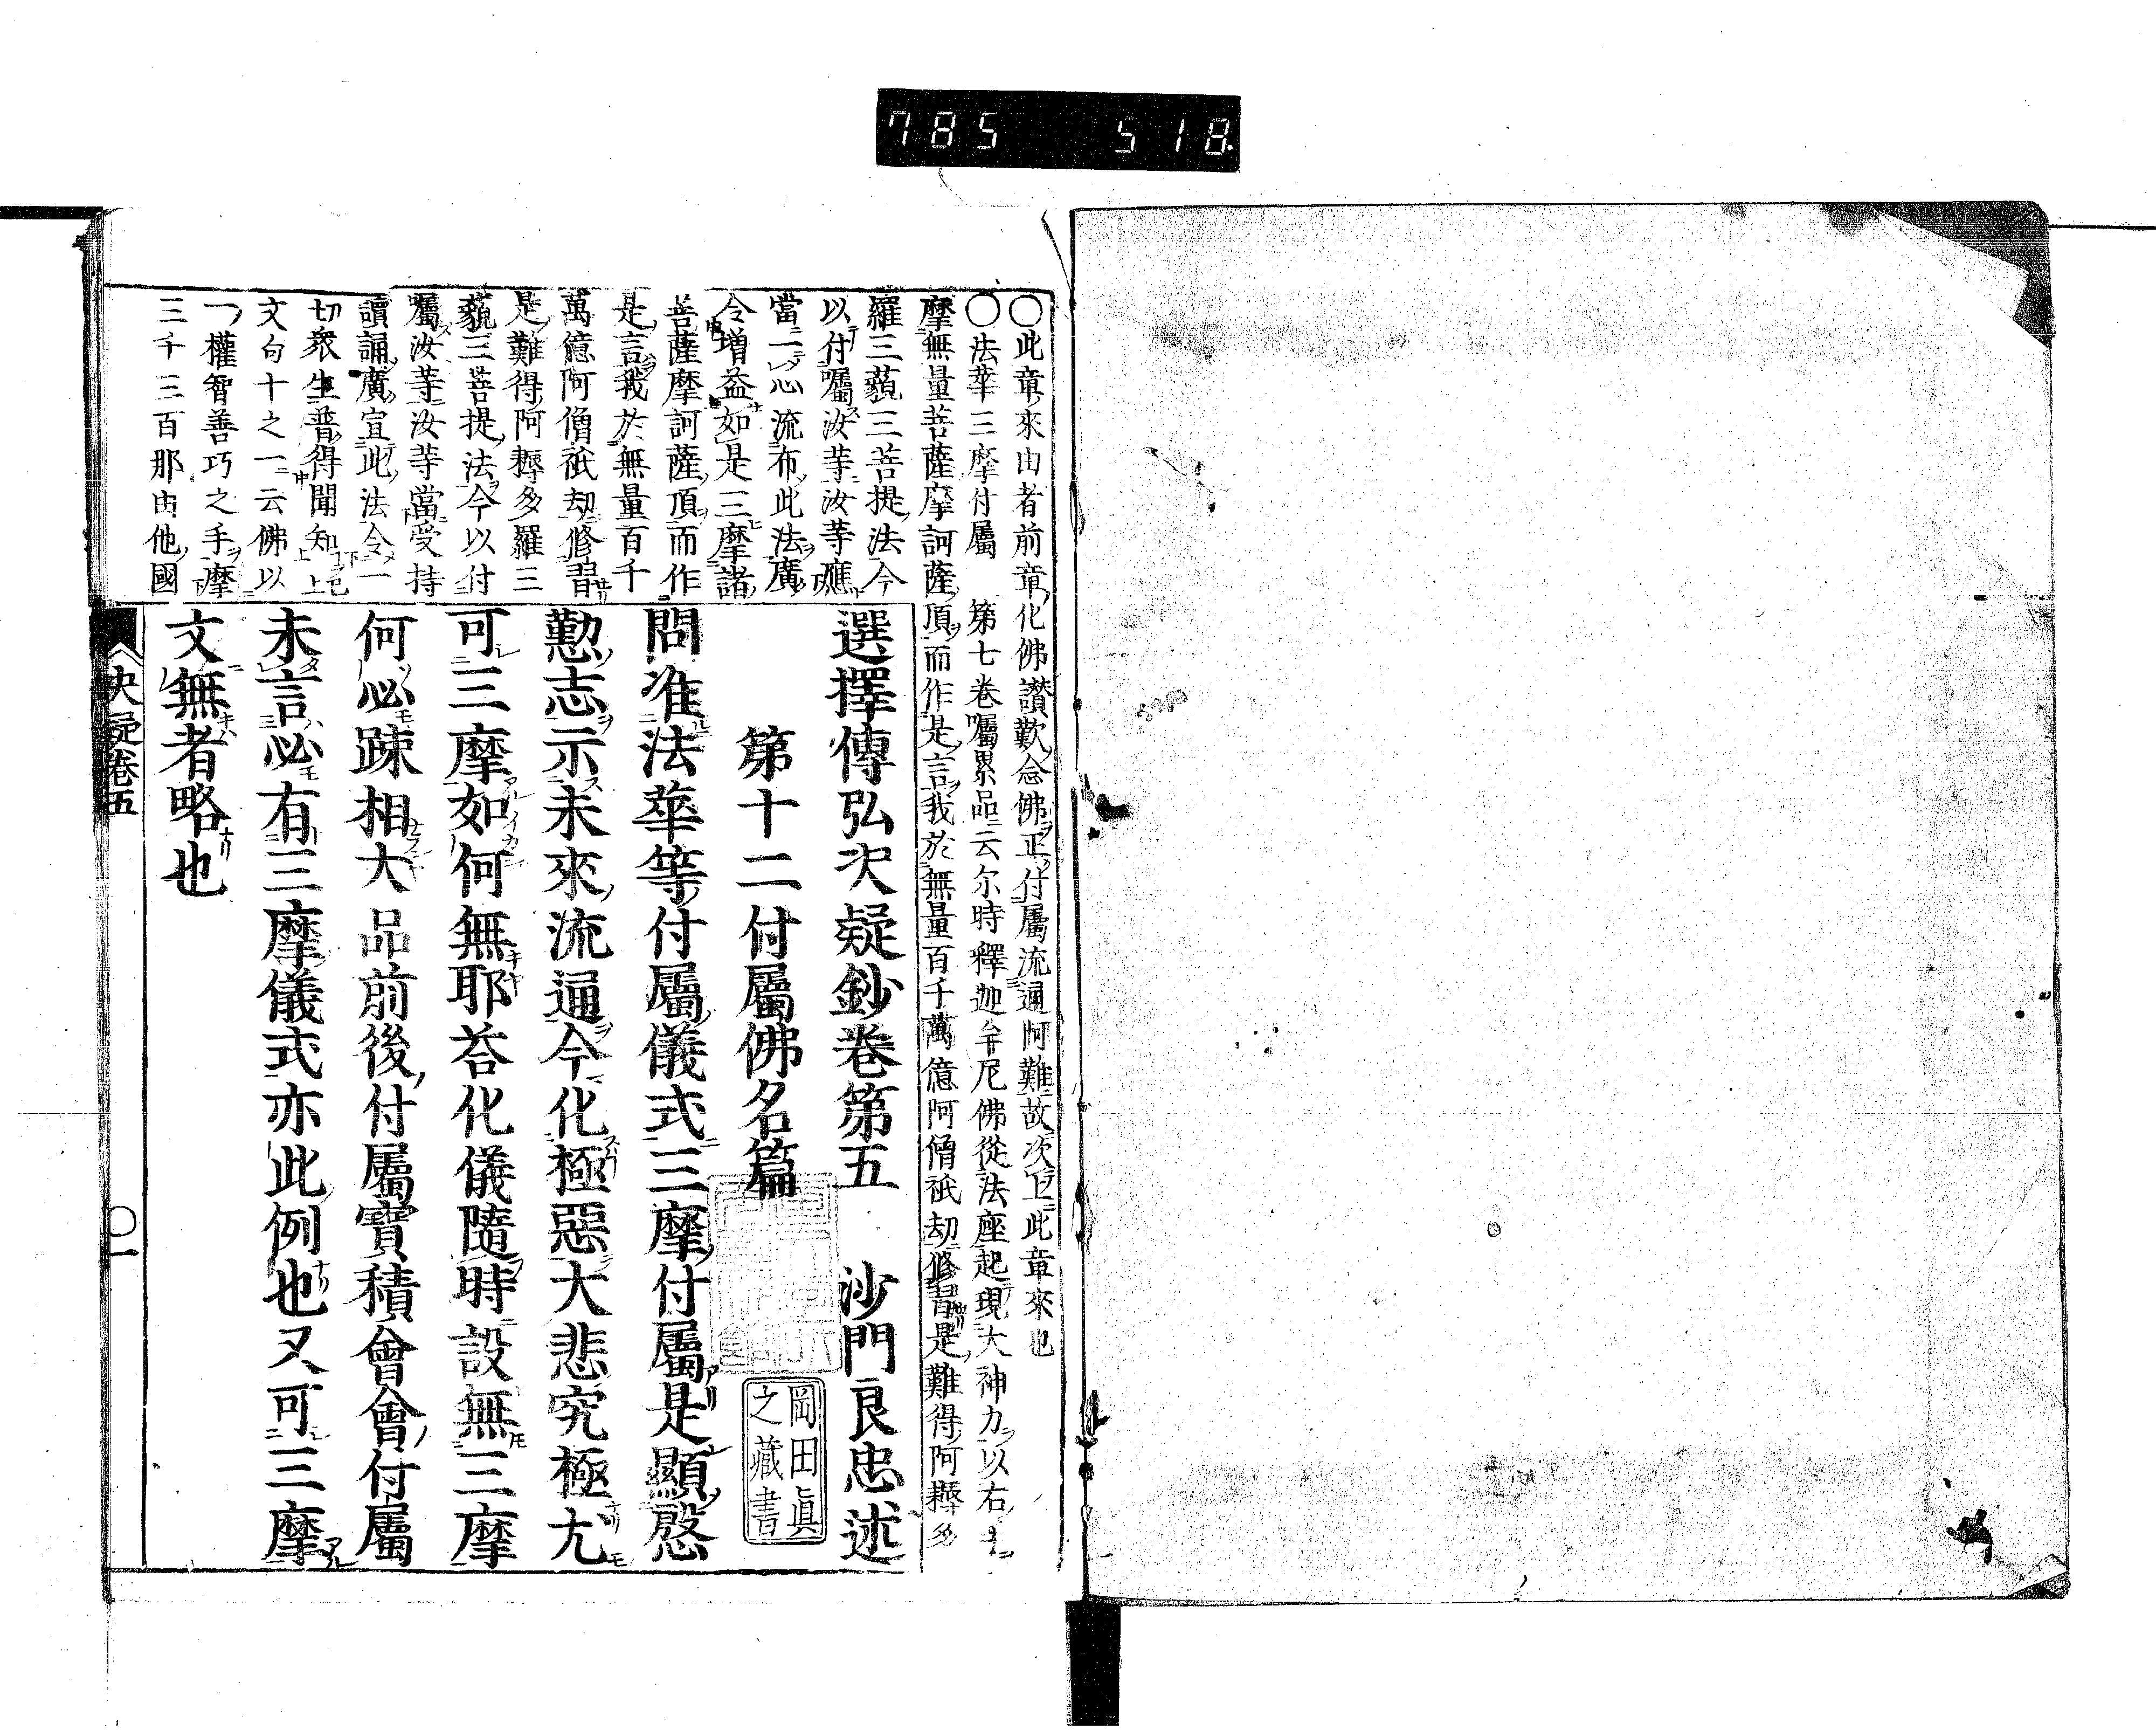 785 518
〇此章來由者前章化佛讃歎念佛正付屬流通阿難故次上此章來也
〇法華三摩付屬 第七卷囑累品云尓時釋迦牟尼佛從法座起現大神力以右手
摩無量菩薩摩訶薩頂而作是言我於無量百千萬億阿僧祇劫修習是難得阿耨多
羅三藐三菩提法今
以付囑汝等汝等應
當一心流布此法廣
令增益如是三摩諸
菩薩摩訶薩頂而作
是言我於無量百千
萬億阿僧祇劫修習
是難得阿耨多羅三
藐三菩提法今以付
屬汝等汝等當受持
讀誦廣宣此法令一
切衆生普得聞知已上
文句十之一云佛以
一權智善巧之手摩
三千三百那由他國
選擇傳弘決疑鈔卷第五 沙門良忠述
第十二付屬佛名篇
問准法華等付屬儀式三摩付屬是顯慇
懃志示未來流通今化極惡大悲究極尤
可三摩如何無耶荅化儀隨時設無三摩
何必踈相大品前後付屬寶積會會付屬
未言必有三摩儀式亦此例也又可三摩
文無者略也
岡田眞
之藏書
決疑卷五
〇一